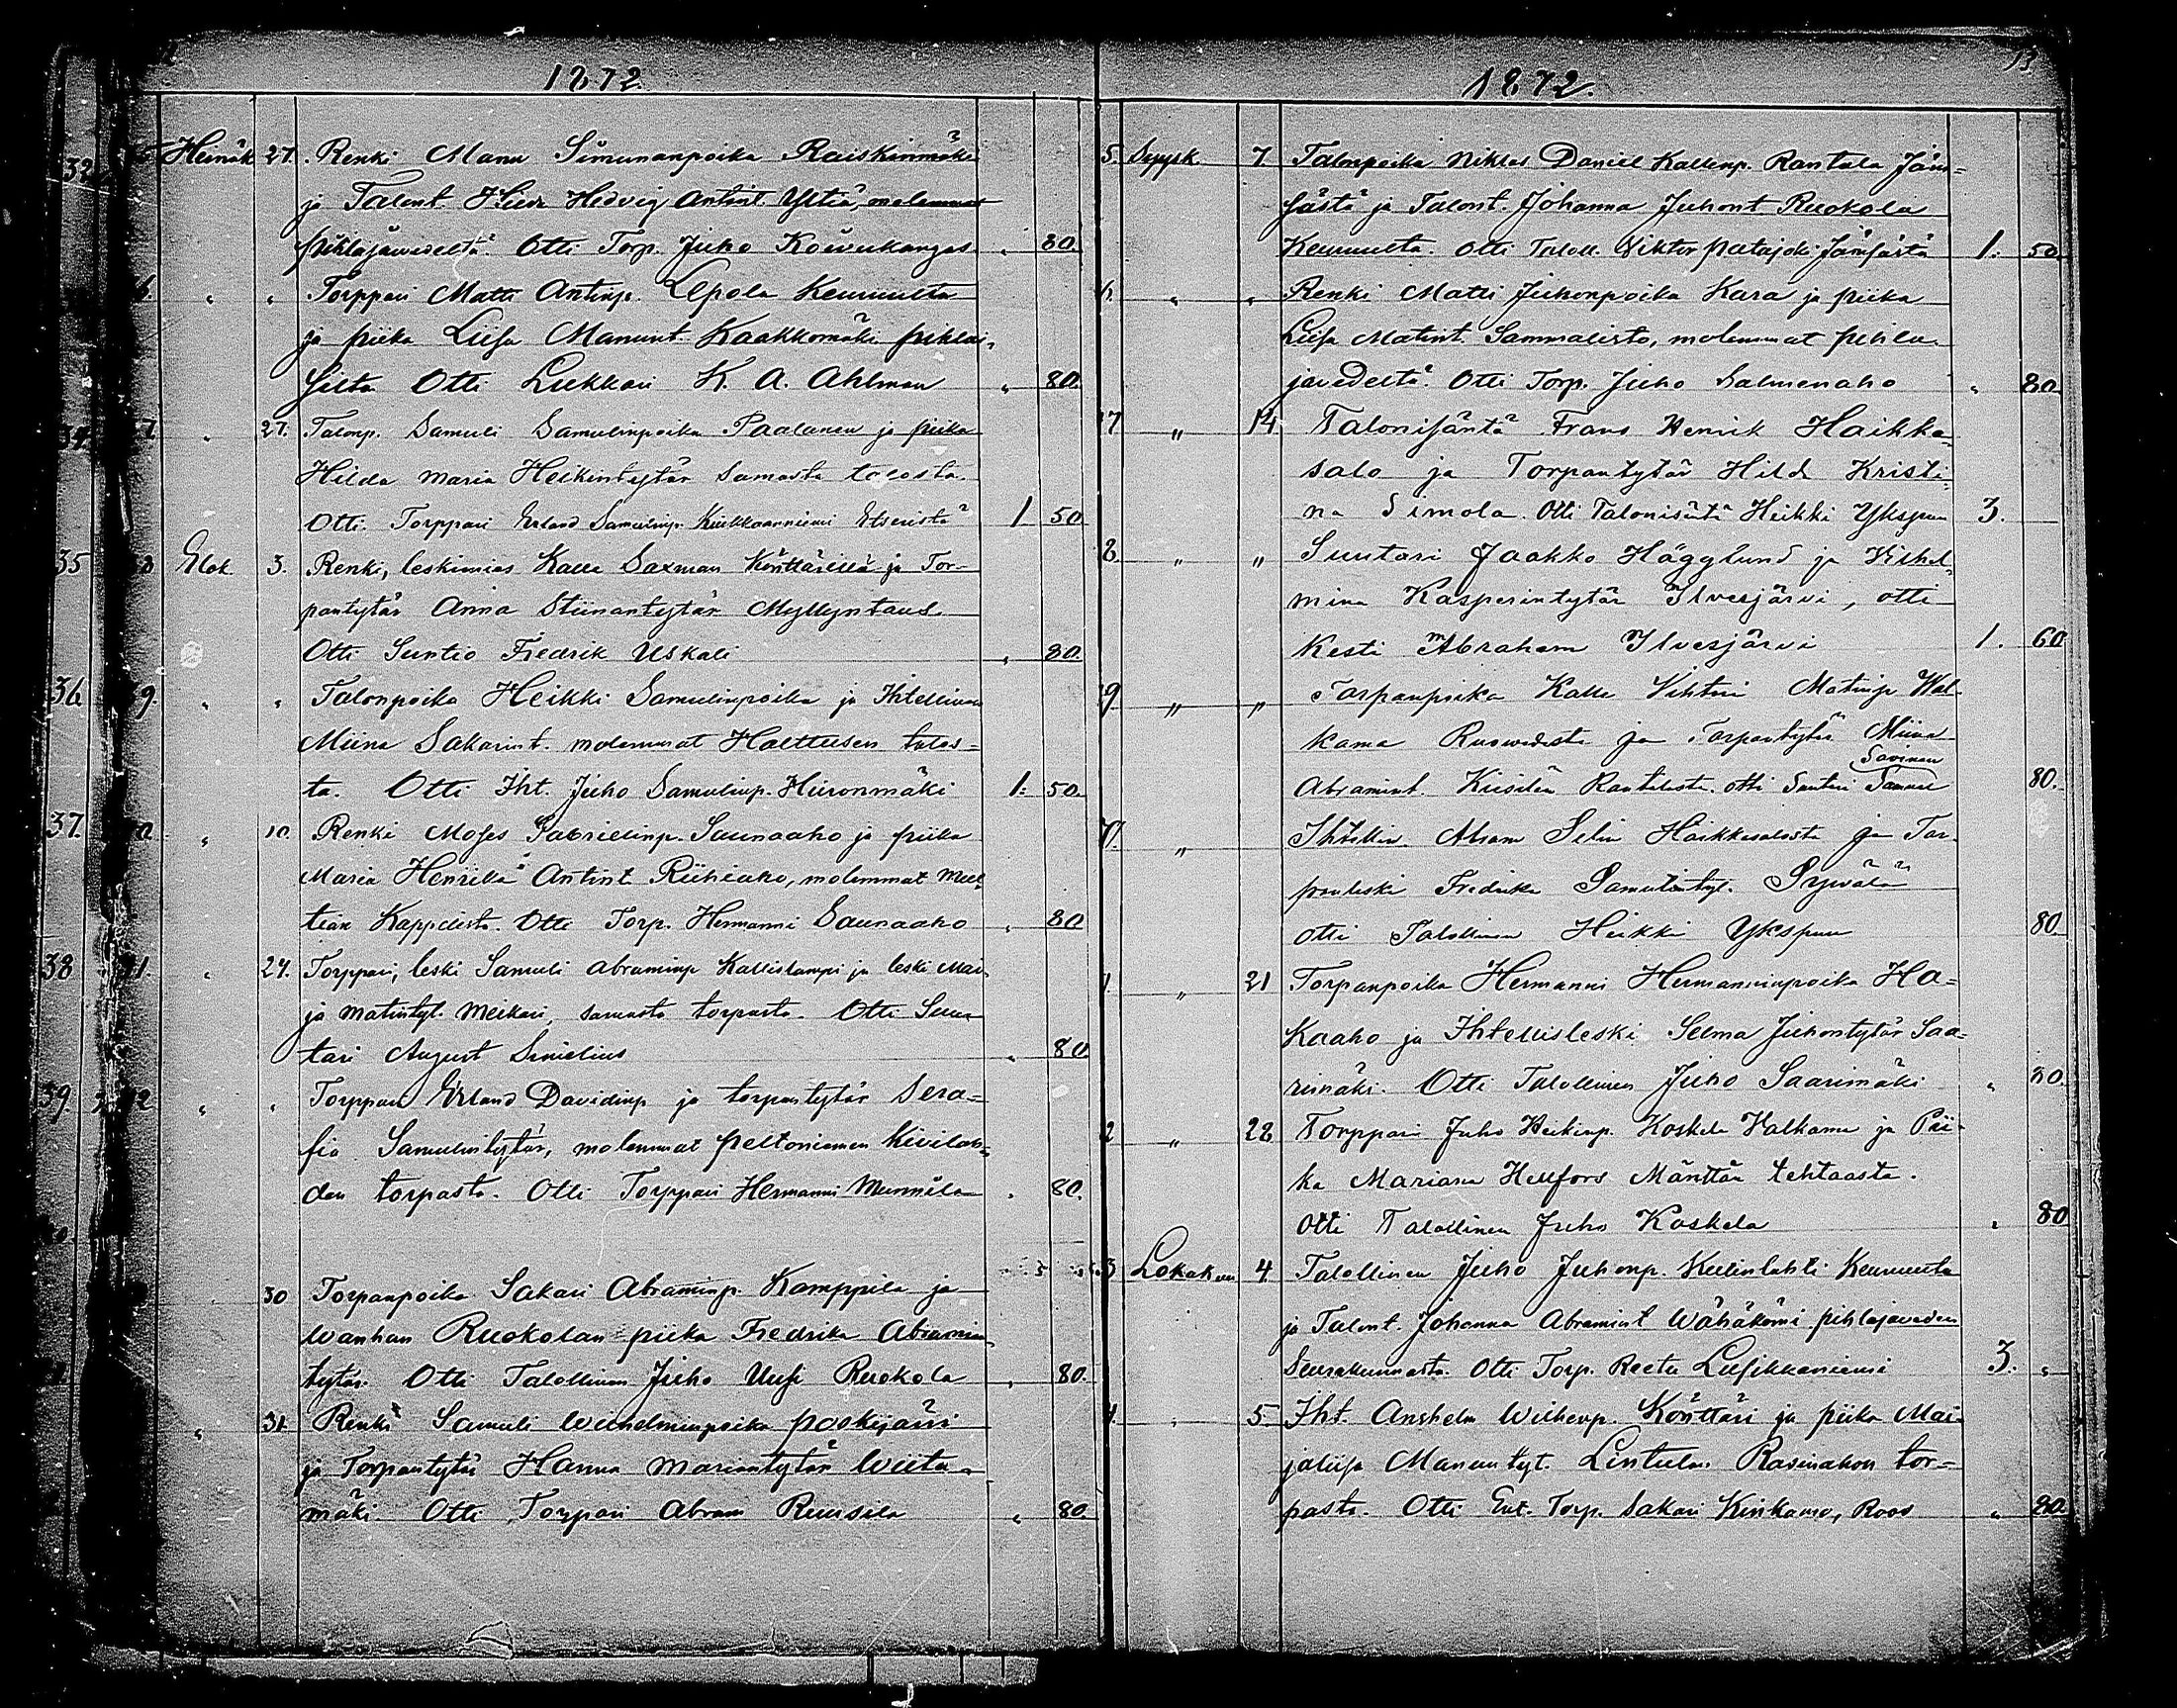 1872.
Heinäk 27. Renki Manu Simunanpoika Raiskinmäki
ja Talont. Hedvig Antint. Yltiä, molemmat
pihlajavedeltä. Otti Torp. Juho Koivukangas „ 80.
6. „ „ Torppari Matti Antinp. Lepola Keuruulta
ja piika Liisa Manunt. Kaakkomäki pihlai-
silta Otti Lukkari K. A. Ahlman „ 80.
7. „ 27. Talonp. Samuli Samulinpoika Paalanen ja piika
Hilda Maria Heikintytär Samasta talosta.
Otti Torppari Erland Samulinp. Kiikkaanniemi Etseristä 1 50
35 8 Elok. 3. Renki, leskimies Kalle Saxman Könttärillä ja Tor-
pantytär Anna Stiinantytär Myllyntaus
Otti Suntio Fredrik Uskali „ 80.
36. 9. „ „ Talonpoika Heikki Samulinpoika ja Ihtellinen
Miina Sakarint. molemmat Halttusen talos-
ta. Otti Iht. Juho Samulinp. Hiironmäki 1: 50.
37. „ 10. Renki Moses Gabrielinp. Saunaaho ja piika
Maria Henrika Antint Riihiaho, molemmat Mul-
tian Kappelista. Otti Torp. Hermanni Saunaaho „ 80
38 „ 24. Torppari, leski Samuli Abraminp Kallislampi ja leski Mai-
ja Matintyt. Meikari, samasta torpasta. Otti Suu-
tari August Sinielius „ 80
39. „ „ Torppari Erland Davidinp ja torpantytär Sera-
fia Samulintytär, molemmat peltoniemen Kivilah-
den torpasta. Otti Torppari Hermanni Mennila „ 80.
30 Torpanpoika Sakari Abraminp. Kamppila ja
Wanhan Ruokolan piika Fredrika Abramin-
tytär. Otti Talollinen Juho Uusi Ruokola „ 80.
„ 31 Renki Samuli Wilhelminpoika poskijärvi
ja Torpantytär Hanna Mariantytär Wiita-
mäki. Otti Torppari Abram Ruusila „ 80.
13
1872.
5. Syysk 7. Talonpoika Niklas Daniel Kallenp. Rantala Jäm-
sästä ja Talont. Johanna Juhont Ruokola
Keuruulta. Otti Taloll. Viktor patajoki Jämsästä 1. 50
6. „ „ Renki Matti Juhonpoika Kara ja piika
Liisa Matint. Sammalisto, molemmat pihla-
javedeltä. Otti Torp. Juho Salmenaho „ 80
7 „ 14 Talonisäntä Frans Henrik Haikka-
salo ja Torpantytär Hild Kristi-
na Simola. Otti Talonisäntä Heikki Ykspuu 3.
8. „ „ Suutari Jaakko Hägglund ja Vilhel-
mina Kasperintytär Ilvesjärvi, otti
Kesti Abraham Ilvesjärvi 1. 60
9 „ „ Torpanpoika Kalle Vihtori Matinp Wal-
kama Ruowedestä ja Torpantytär Miina
Savinen
Abramint. Kiisilän Rantalasta. otti Santeri 80.
„ Ihtellin. Abram Selin Haikkasalosta ja Tor-
panleski Fredrika Samulintyt. Sywälä
otti Talollinen Heikki Ykspuu 80.
„ 21 Torpanpoika Hermanni Hermanninpoika Ha-
kaaho ja Ihtellisleski Selma Juhontytär Saa-
rimäki. Otti Talollinen Juho Saarimäki „ 80.
2 „ 22 Torppari Juho Heikinp. Koskela Valkama ja Pii-
ka Mariana Hellfors Mänttän tehtaasta.
Otti Talollinen Juho Koskela „ 80
3 Lokakuu 4. Talollinen Juho Juhonp. Kulinlahti Keuruulta
ja Talont. Johanna Abramint Wähäkömi pihlajaveden
Seurakunnasta. Otti Torp. Reetu Lusikkaniemi 3. „
4. „ 5. Iht. Anshelm Wilhenp. Könttäri ja piika Mai-
jaliisa Manuntyt. Lintula Rasinahon tor-
pasta. Otti Ent. Torp. Sakari Kinkamo, Roos „ 80.